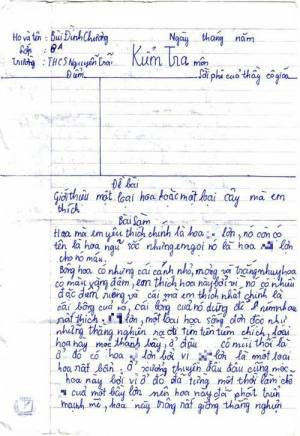 Họ và tên: Bùi Đình Chương Ngày tháng năm
Lớp: 8A Kiểm Tra môn
Trường: THCS Nguyễn Trãi
Điểm Lời phê của thầy cô giáo
Đề bài
Giới thiệu một loại hoa hoặc một loại cây mà em
thích
Bài Làm
Hoa mà em yêu thích chính là hoa lớn, nó còn có
tên là hoa ngũ sắc nhưng em gọi nó là hoa lớn
cho nó máu.
Bông hoa có những cái cánh nhỏ, mỏng và trắng nhụy hoa
có màu vàng đậm, em thích hoa này bởi vì, nó có nhiều
đặc điểm riêng và cái mà em thích nhất chính là
cái bông của nó, cái bông của nó dùng để
rất thích lớn, một loại hoa sống đơn độc như
những thằng nghiện ra đi tìm tiêm chích, loài
hoa này mọc thành bầy, ở đâu có mùi thối là
ở đó có hoa lớn bởi vì lớn là một loài
hoa rất bẩn. Ở xương thuyền đầu đâu cũng mọc
hoa này bởi vì ở đó đã từng một thời làm chỗ
của một bầy lợn nên hoa này đã phát triển
mạnh mẽ, hoa này trông rất giống thằng nghiện